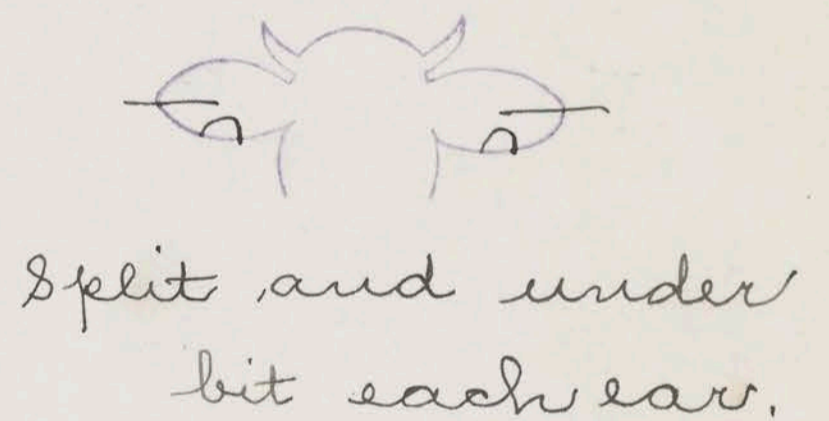 Split and under
bit each ear.